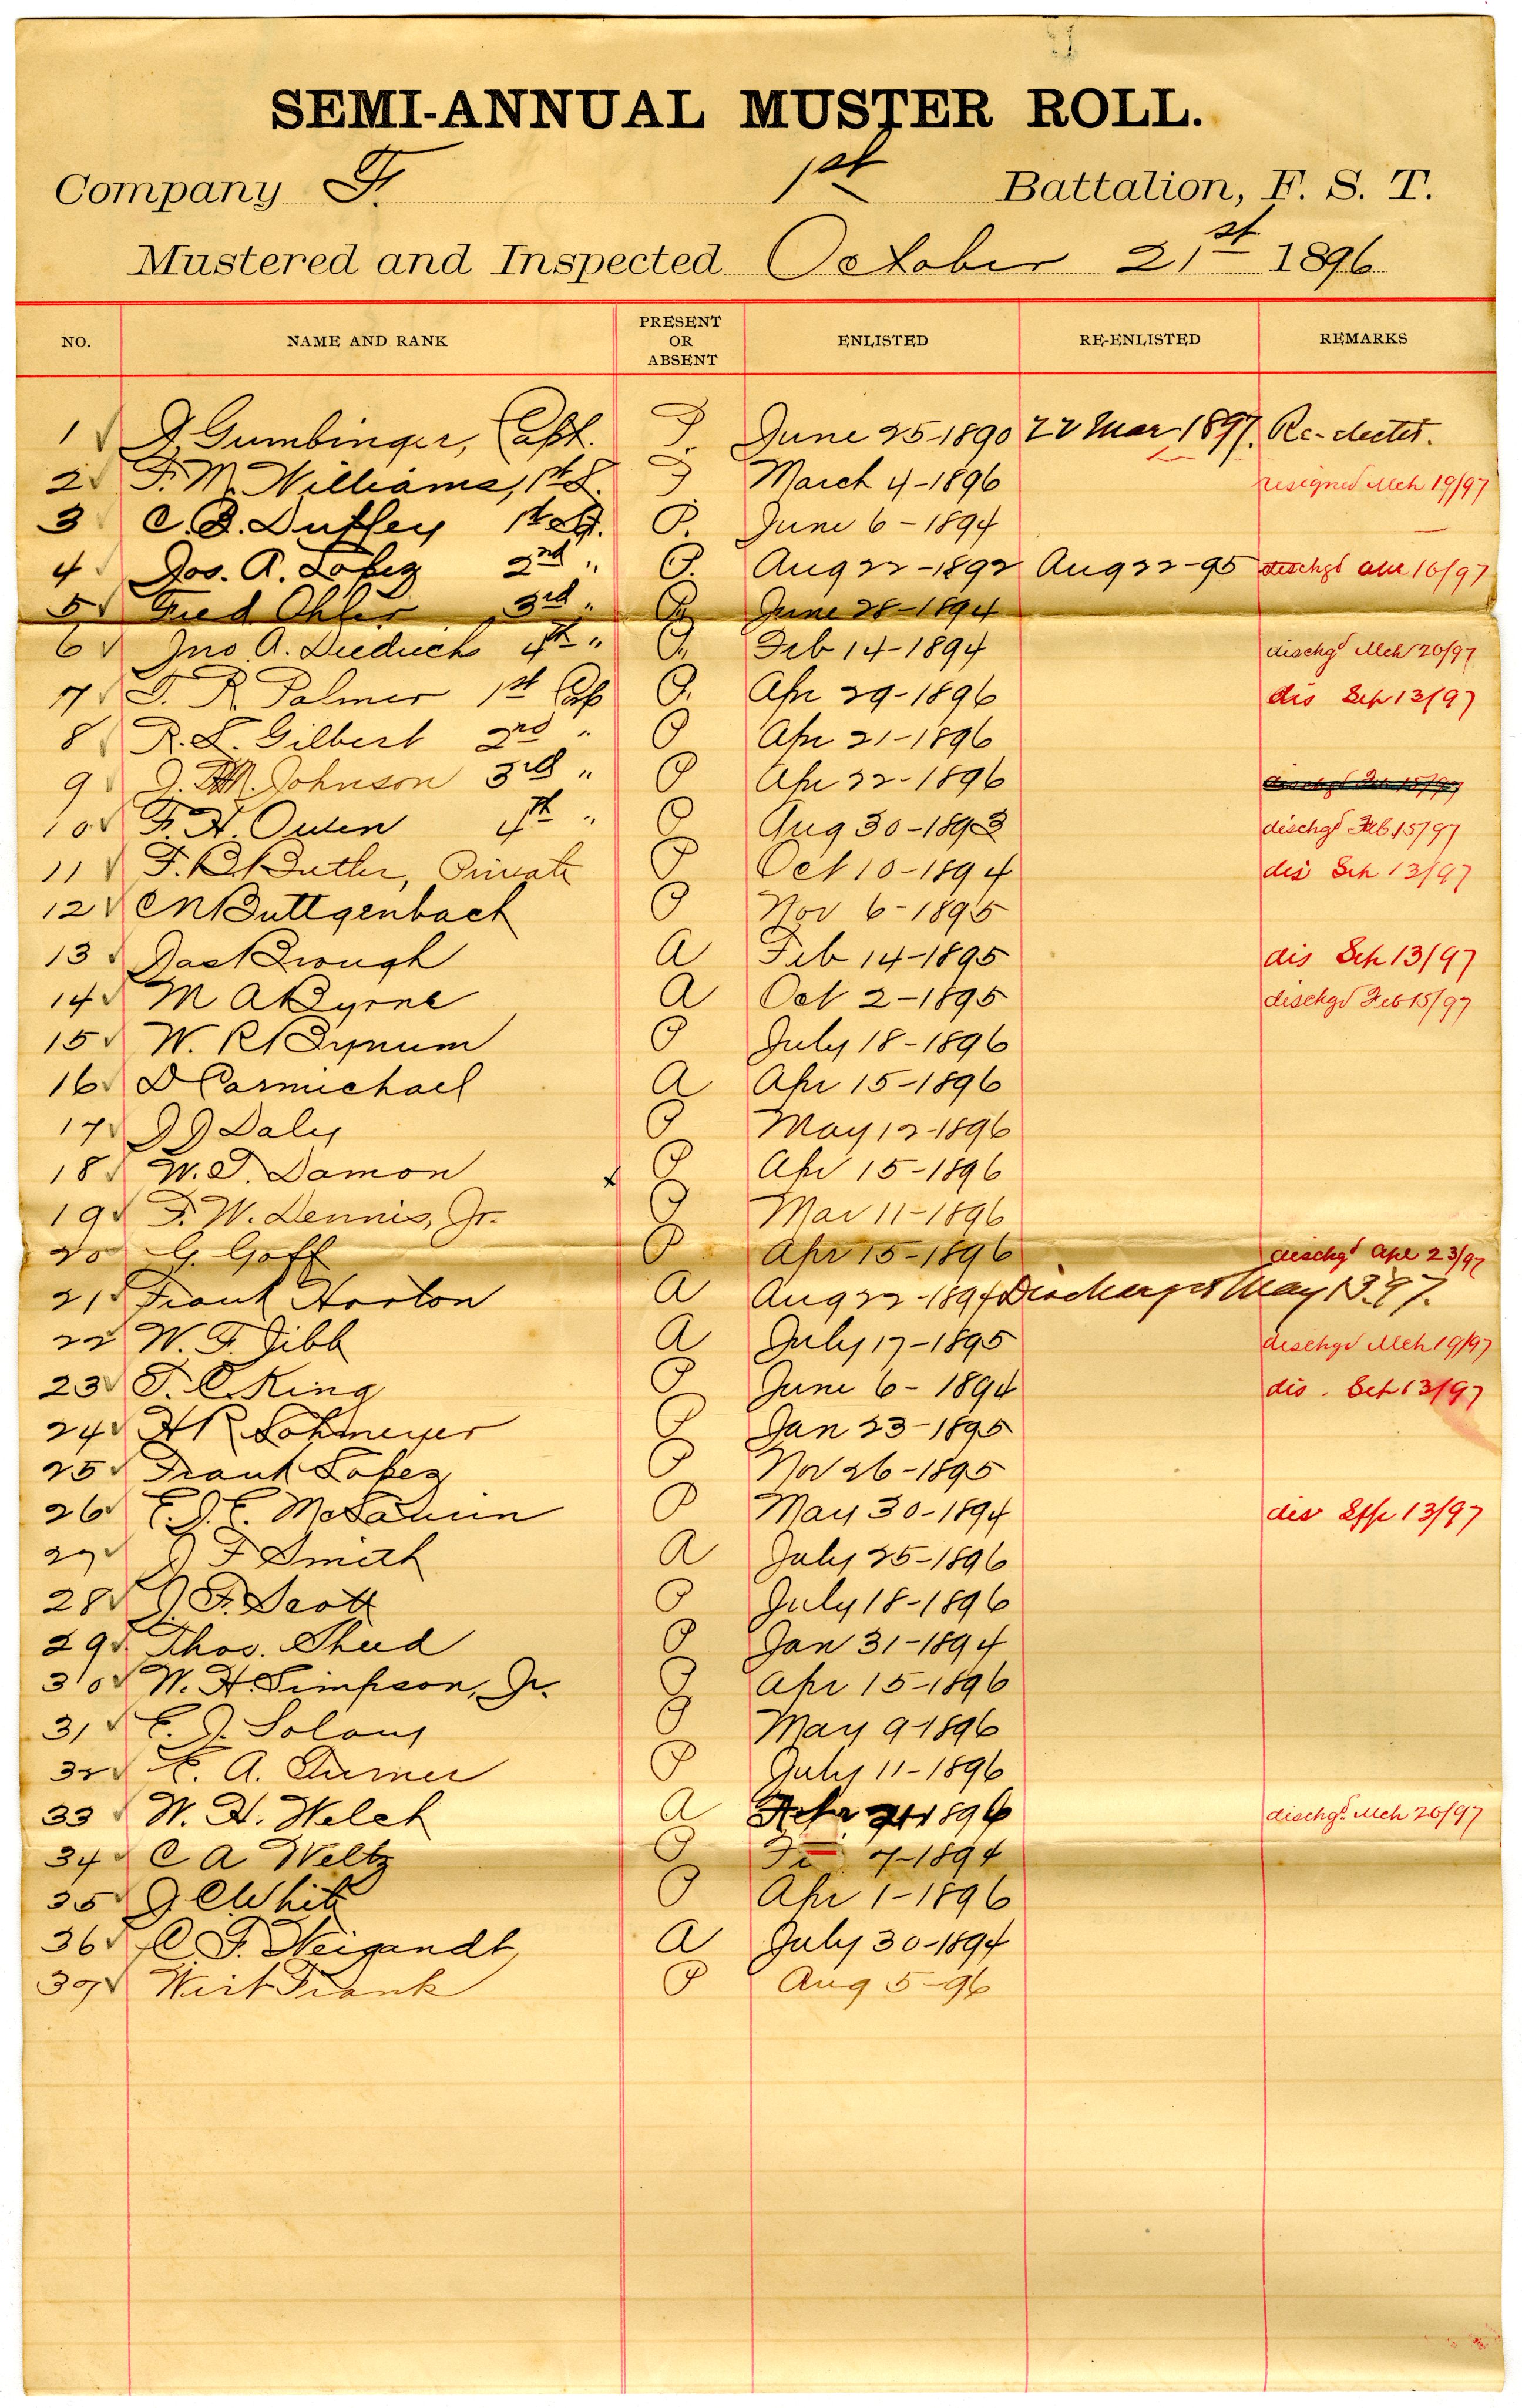 SEMI-ANNUAL MUSTER ROLL.
Company F. 1st Battalion, F. S. T.
Mustered and Inspected October 21st 1896
NO. NAME AND RANK PRESENT OR ABSENT ENLISTED RE-ENLISTED REMARKS
1 J Gumbinger, Capt. P. June 25-1890 22 Mar 1897. Re-elected.
2 F. M. Williams, 1st L. P March 4-1896 resigned Mch 19/97
3 C. B. Duffey 1st Sg. P. June 6-1894
4 Jos. A. Lopez 2nd " P. Aug 22-1892 Aug 22-95 dischgd 16/97
5 Fred Ohlis 3rd " P. June 28-1894
6 Jno A. Diedrich 4th " P. Feb 14-1894 dischgd Mch 20/97
7 T. R. Palmer 1st Corp P. Apr 29-1896 dis Sep 13/97
8 R. L. Gilbert 2nd " P Apr 21-1896
9 J. M. Johnson 3rd " P Apr 22-1896 dischgd Feb 15/97
10 F. H. Owen 4th " P Aug 30-1893 dischgd Feb 15/97
11 F. B Butler, Private P Oct 10-1894 dis Sep 13/97
12 C N Buttgenbach P Nov 6-1895
13 Jas Brough A Feb 14-1895 dis Sep 13/97
14 M A Byrne A Oct 2-1895 dischgd Feb 15/97
15 W. R Bynum P July 18-1896
16 D Carmichael A Apr 15-1896
17 J J Daly P May 12-1896
18 W. T. Damon x P Apr 15-1896
19 F. W. Dennis, Jr. P Mar 11-1896
20 G. Goff P Apr 15-1896 dischgd Apl 23/97
21 Frank Horton A Aug 22-1894 Discharged May 13.97.
22 W. F. Jibb A July 17-1895 dischgd Mch 19/97
23 T. C. King P June 6-1894 dis. Sep 13/97
24 H R Lohmeyer P Jan 23-1895
25 Frank Lopez P Nov 26-1895
26 E. J. E. McLaurin P May 30-1894 dis Sep 13/97
27 J F Smith A July 25-1896
28 J. F. Scott P July 18-1896
29 Thos. Shed P Jan 31-1894
30 W. H. Simpson, Jr. P Apr 15-1896
31 E. J. Solany P May 9-1896
32 E. A. Turner P July 11-1896
33 W. H. Welch A 1896 dischgd. Mch 20/97
34 C A Weltz P 7-1894
35 J C White P Apr 1-1896
36 C. F. Weigandt A July 30-1894
37 West Frank P Aug 5-96